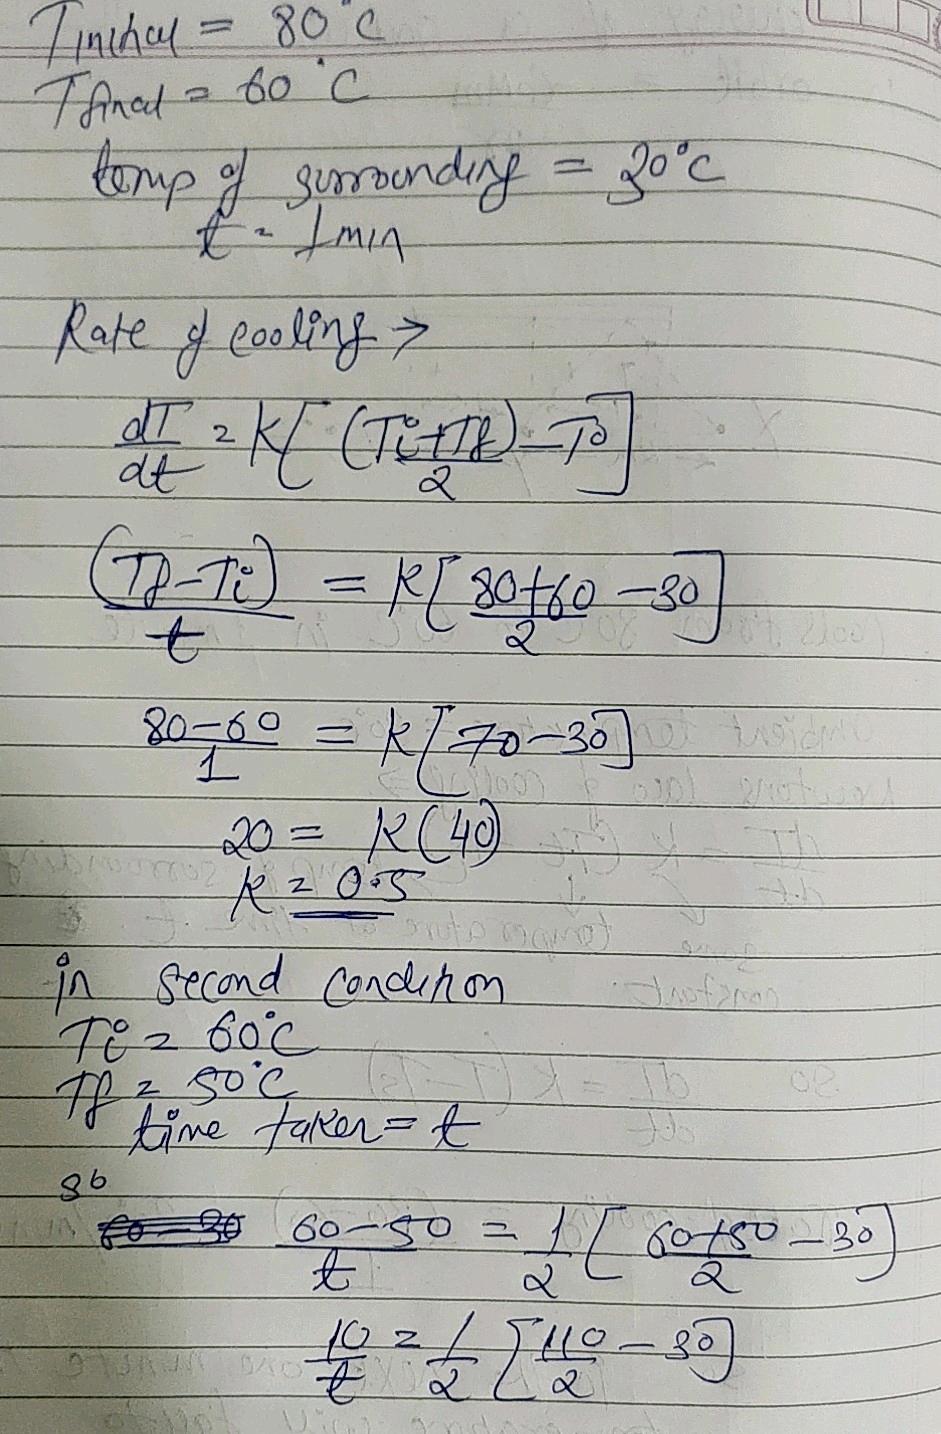 Tinitial = 80°C
Tfinal = 60°C
temp of surrounding = 30°C
t = 1min
Rate of cooling →
dT/dt = K[(Ti+Tf)/2 - To]
(Tf-Ti)/t = K[80+60/2 - 30]
80-60/1 = K[70-30]
20 = K(40)
K = 0.5
in second condition
Ti = 60°C
Tf = 50°C
time taken = t
so
60-50/t = 1/2[60+50/2 - 30]
10/t = 1/2[110/2 - 30]